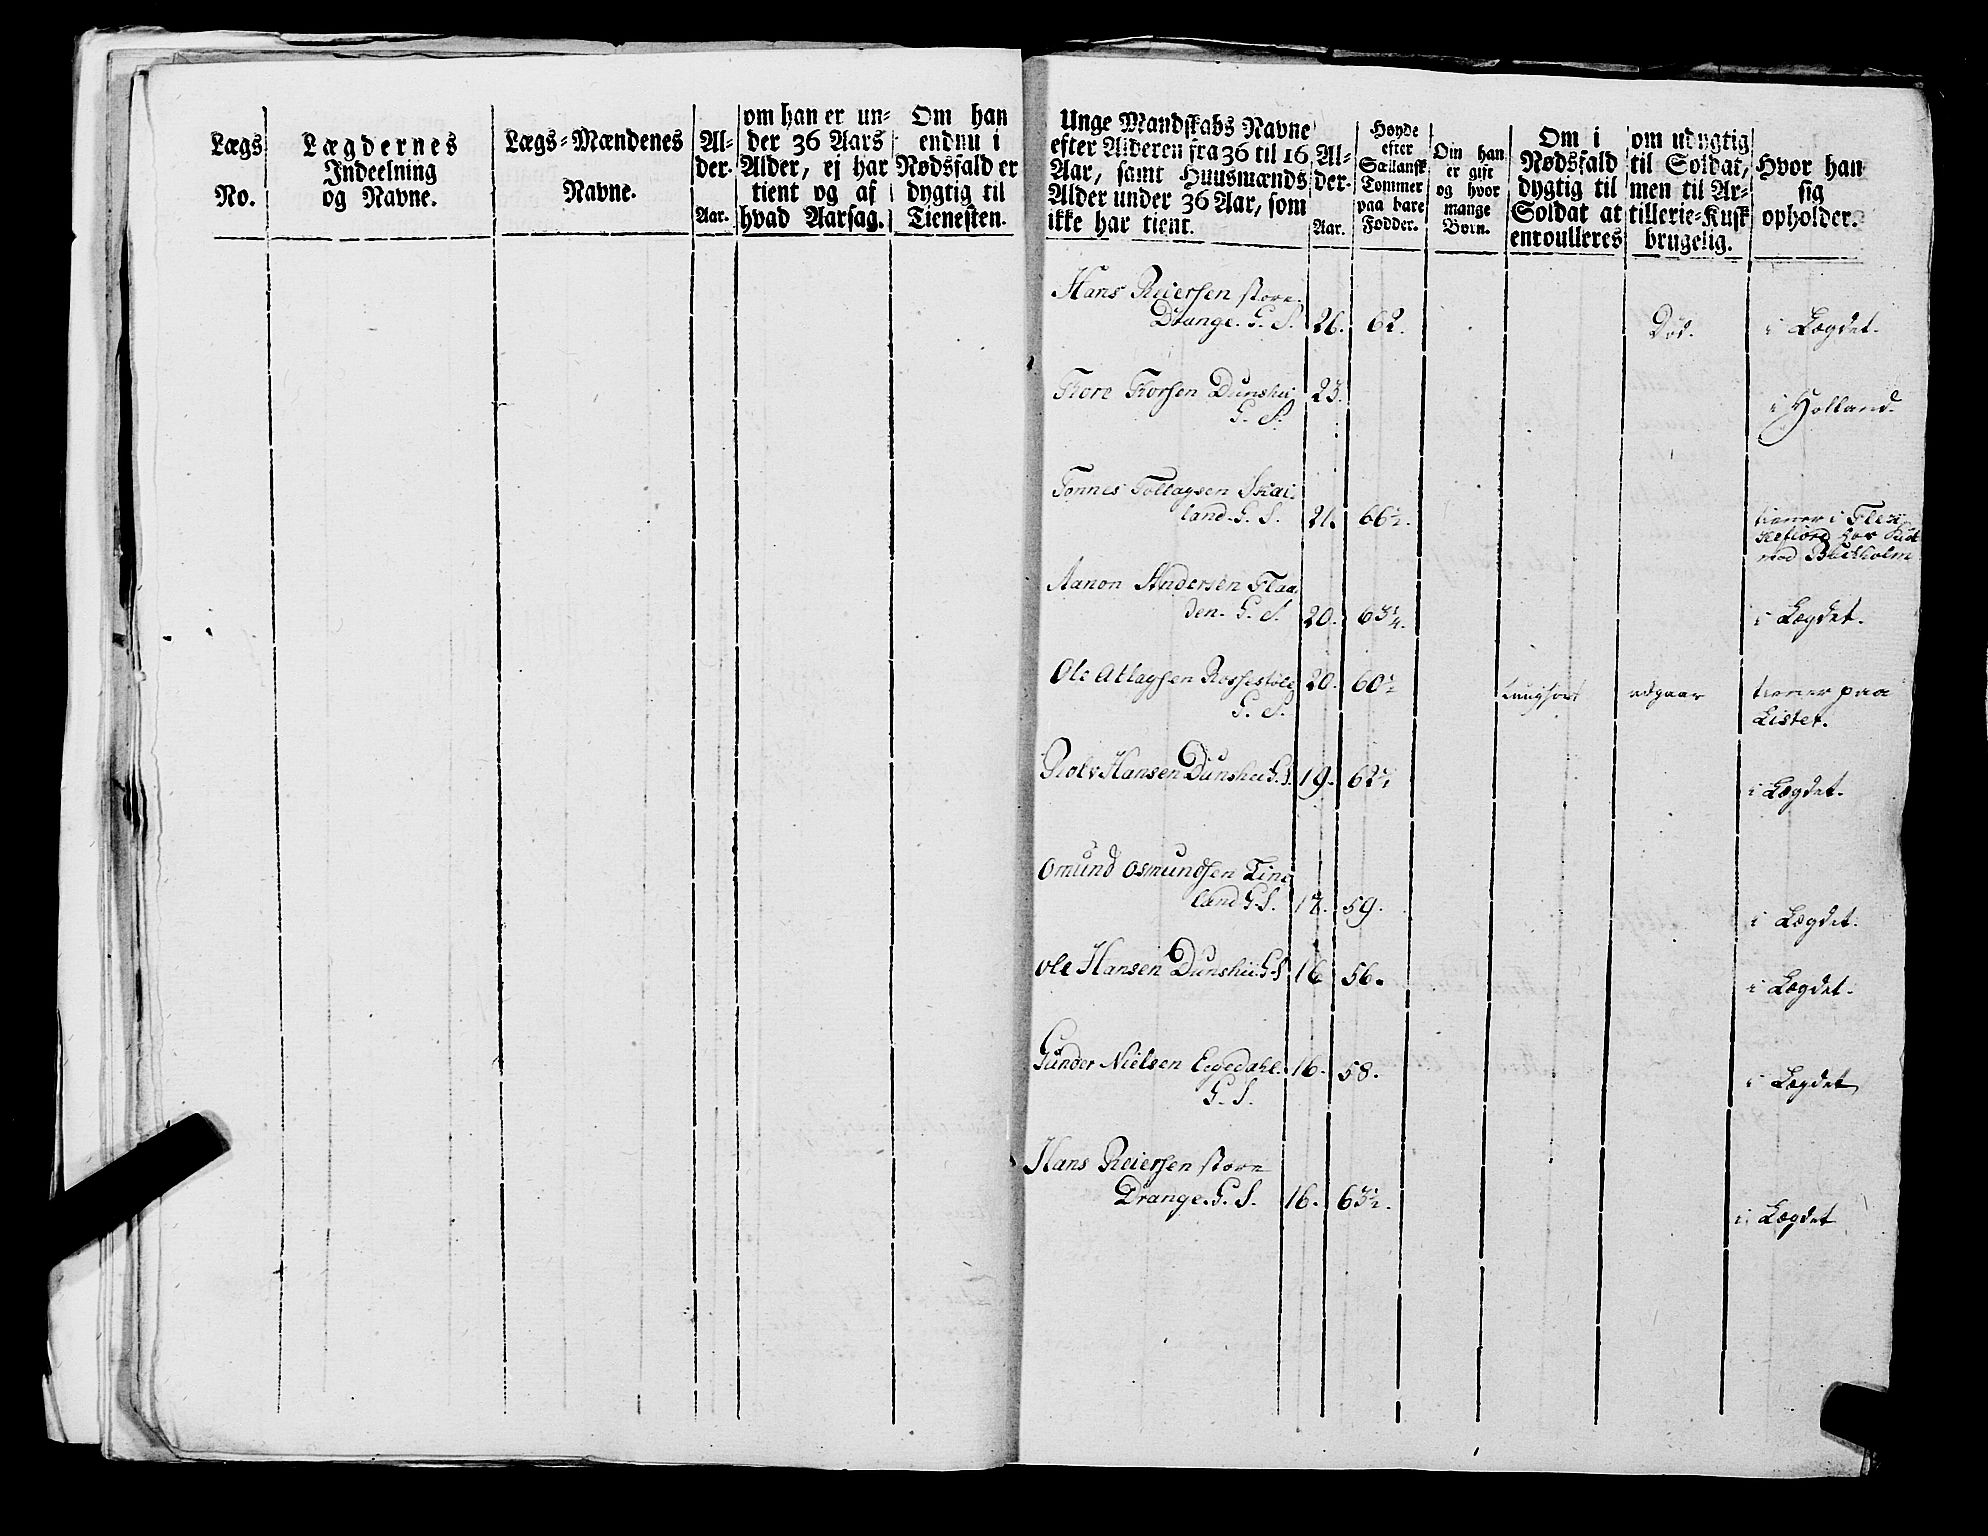 Lægs
No.
Lægdernes
Indeelning
og Navne.
Lægs-Mændenes
Navne.
Al-
der.
Aar.
om han er un-
der 36 Aars
Alder, ej har
tient og af
hvad Aarsag.
Om han
endnu i
Nødsfald er
dygtig til
Tienesten.
Unge Mandskabs Navne
efter Alderen fra 36 til 16
Aar, samt Huusmænds
Alder under 36 Aar, som
ikke har tient.
Al-
der.
Aar.
Høyde
efter
Sællansk
Tommer
paa bare
Fødder.
Om han
er gift
og hvor
mange
Børn.
Om i
Nødsfald
dygtig til
Soldat at
enroulleres
om udygtig
til Soldat,
men til Ar-
tillerie-Kusk
brugelig.
Hvor han
sig
opholder.
Hans Reiersen store
Drange. G. S. 26. 62. Død. i Lægdet.
Tore Torsen Dunshei 23.
G. S. i Holland.
Tønnes Tollagsen Skai-
land. G. S. 21. 66½. tiener i Flek
mod Buckholm
Aanon Andersen Flaa
den. G. S. 20. 63¼. i Lægdet.
Ole Atlagsen Rossestole 20. 60½ udgaar tiener paa
G. S. Lister.
Rolv Hansen Dunshei G. S. 19. 62½ i Lægdet.
Omund Osmundsen Ting
land G. S. 17. 59. i Lægdet.
Ole Hansen Dunshei G. S 16 56. i Lægdet.
Gunder Nielsen Eegedahl. 16. 58. i Lægdet
G. S.
Hans Reiersen store
Drange. G. S. 16. 63½. i Lægdet